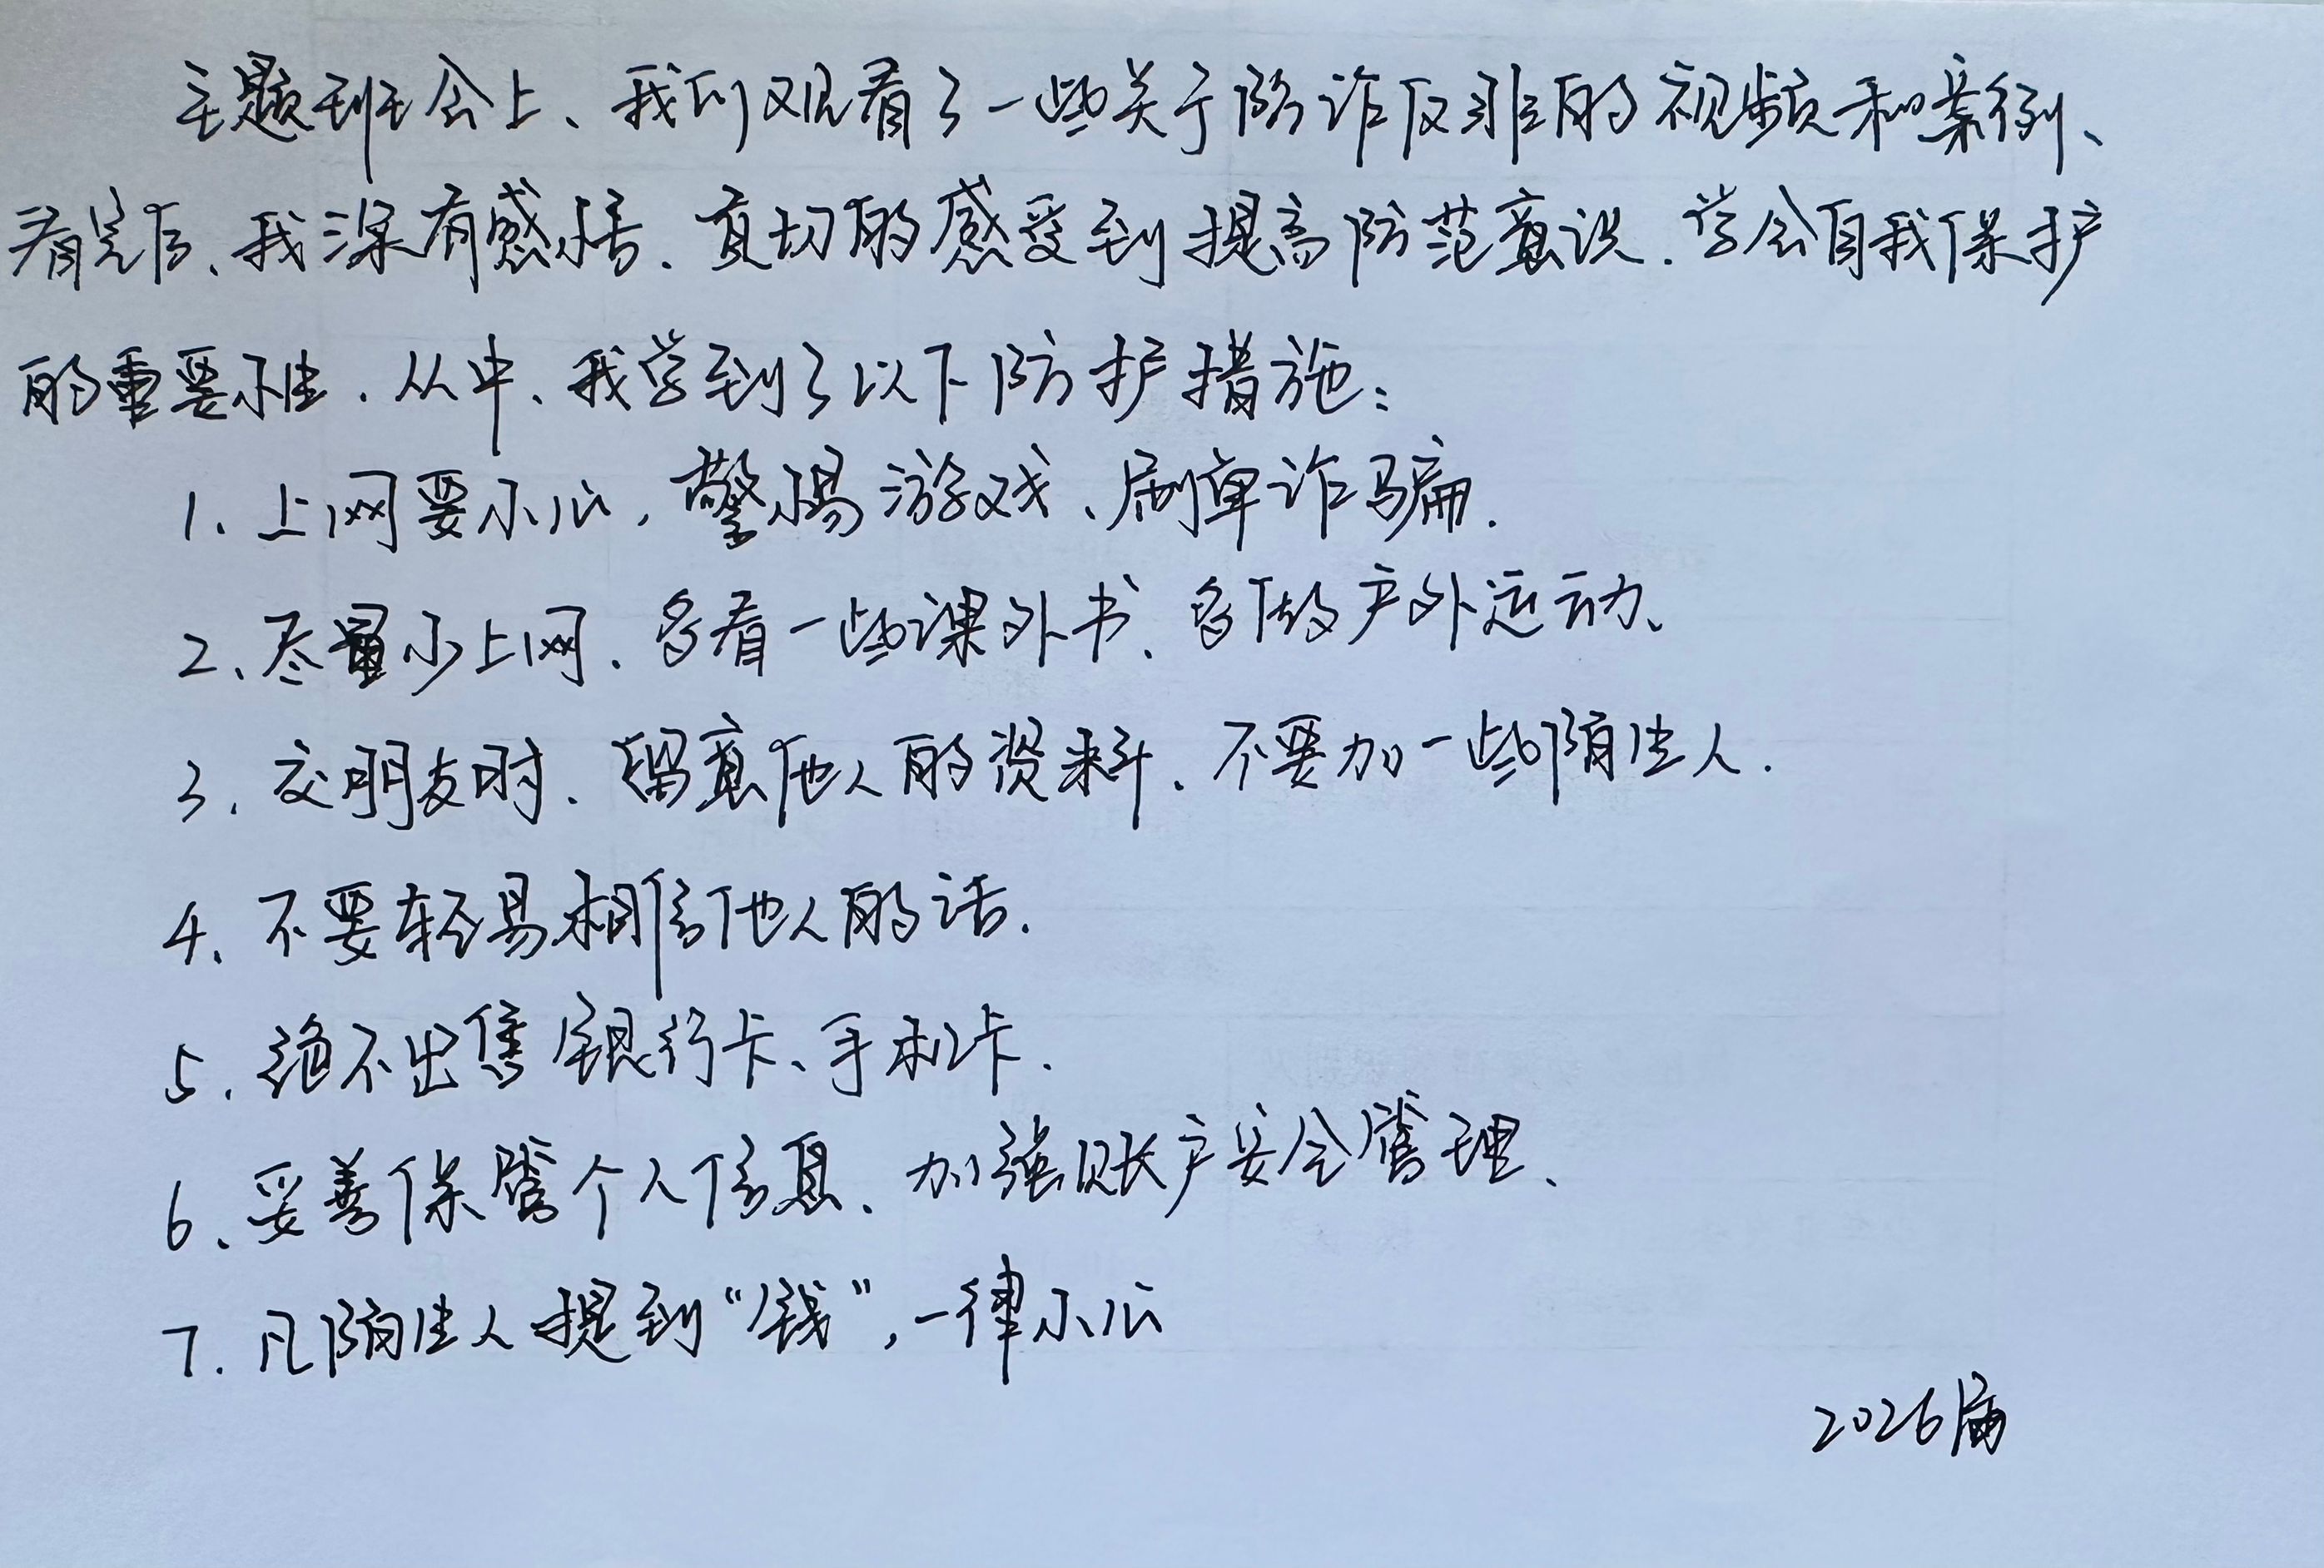 主题班会上、我们观看了一些关于防诈反非的视频和案例、
看完后、我深有感悟、真切的感受到提高防范意识、学会自我保护
的重要性.从中、我学到了以下防护措施:
1、上网要小心,警惕游戏、刷单诈骗.
2、尽量少上网.多看一些课外书、多做户外运动、
3、交朋友时、留意他人的资料、不要加一些陌生人.
4、不要轻易相信他人的话.
5、绝不出售银行卡、手机卡.
6、妥善保管个人信息、加强账户安全管理、
7.凡陌生人提到“钱”,一律小心
2026届